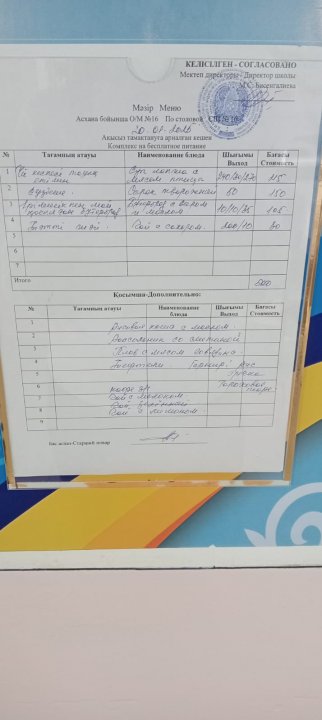 КЕЛІСІЛГЕН - СОГЛАСОВАНО
Мектеп директоры - Директор школы
М.С. Бисенгалиева
Мәзір Меню
Асхана бойынша О/М №16 По столовой СШ № 16
Ақысыз тамақтануға арналған кешен
Комплекс на бесплатное питание
№ Тағамның атауы Наименование блюда Шығымы Выход Бағасы Стоимость
1 Суп лапша с мясом птицы 215
2 Сырок творожный 50 150
3 Бутерброд с сыром и маслом 10/10/35 105
4 Чай с сахаром. 200/10 30
5
6
7
Итого 500
Қосымша-Дополнительно:
№ Тағамның атауы Наименование блюда Шығымы Выход Бағасы Стоимость
1 Рисовая каша с маслом
2 со сметаной
3 Плов с мясом
4 Гарнир: рис
5 Гречка
6 Гороховое пюре
7 Чай с молоком.
8 Чай
9 Чай с лимоном
Бас аспаз-Старший повар